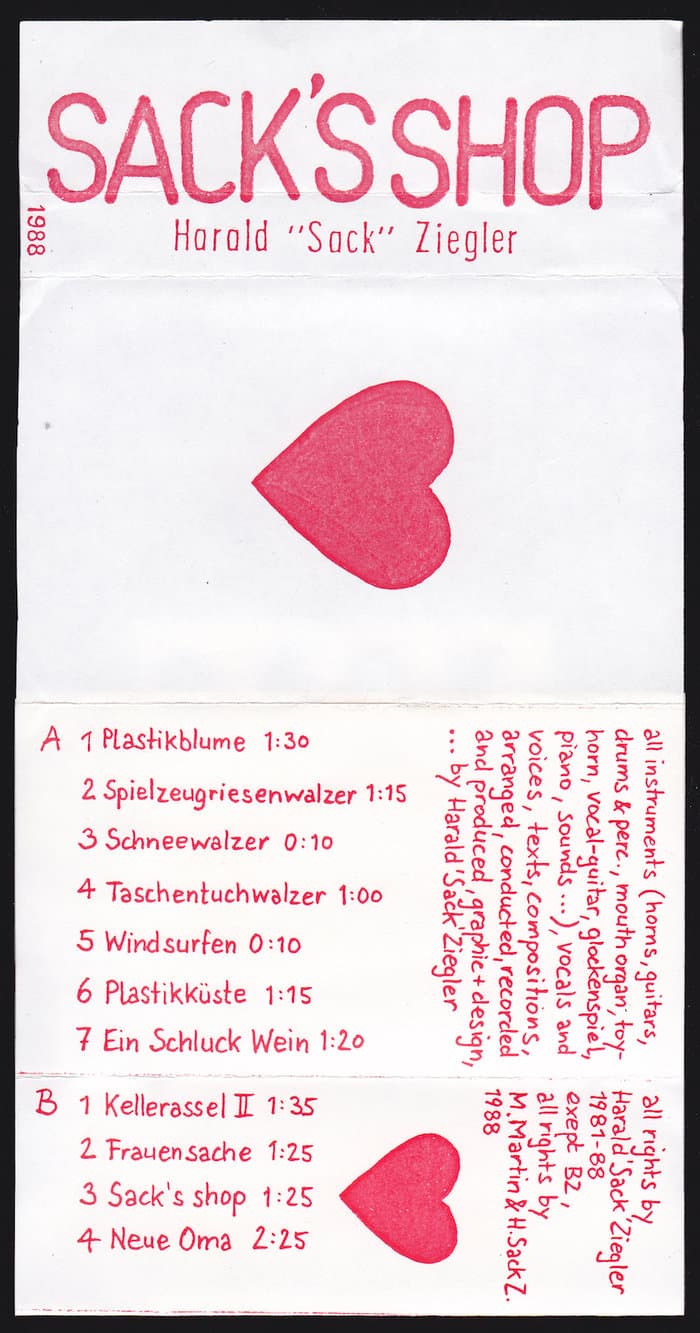 SACK'S SHOP
1988
Harald "Sack" Ziegler
A 1 Plastikblume 1:30
2 Spielzeugriesenwalzer 1:15
3 Schneewalzer 0:10
4 Taschentuchwalzer 1:00
5 Windsurfen 0:10
6 Plastikküste 1:15
7 Ein Schluck Wein 1:20
all instruments (horns, guitars,
drums & perc., mouth organ, toy-
horn, vocal-guitar, glockenspiel,
piano, sounds ...), vocals and
voices, texts, compositions,
arranged, conducted, recorded
and produced, graphic + design,
... by Harald 'Sack' Ziegler
B 1 Kellerassel II 1:35
2 Frauensache 1:25
3 Sack's shop 1:25
4 Neue Oma 2:25
all rights by
Harald 'Sack' Ziegler
1981-88
exept B2,
all rights by
M. Martin & H. Sack Z.
1988